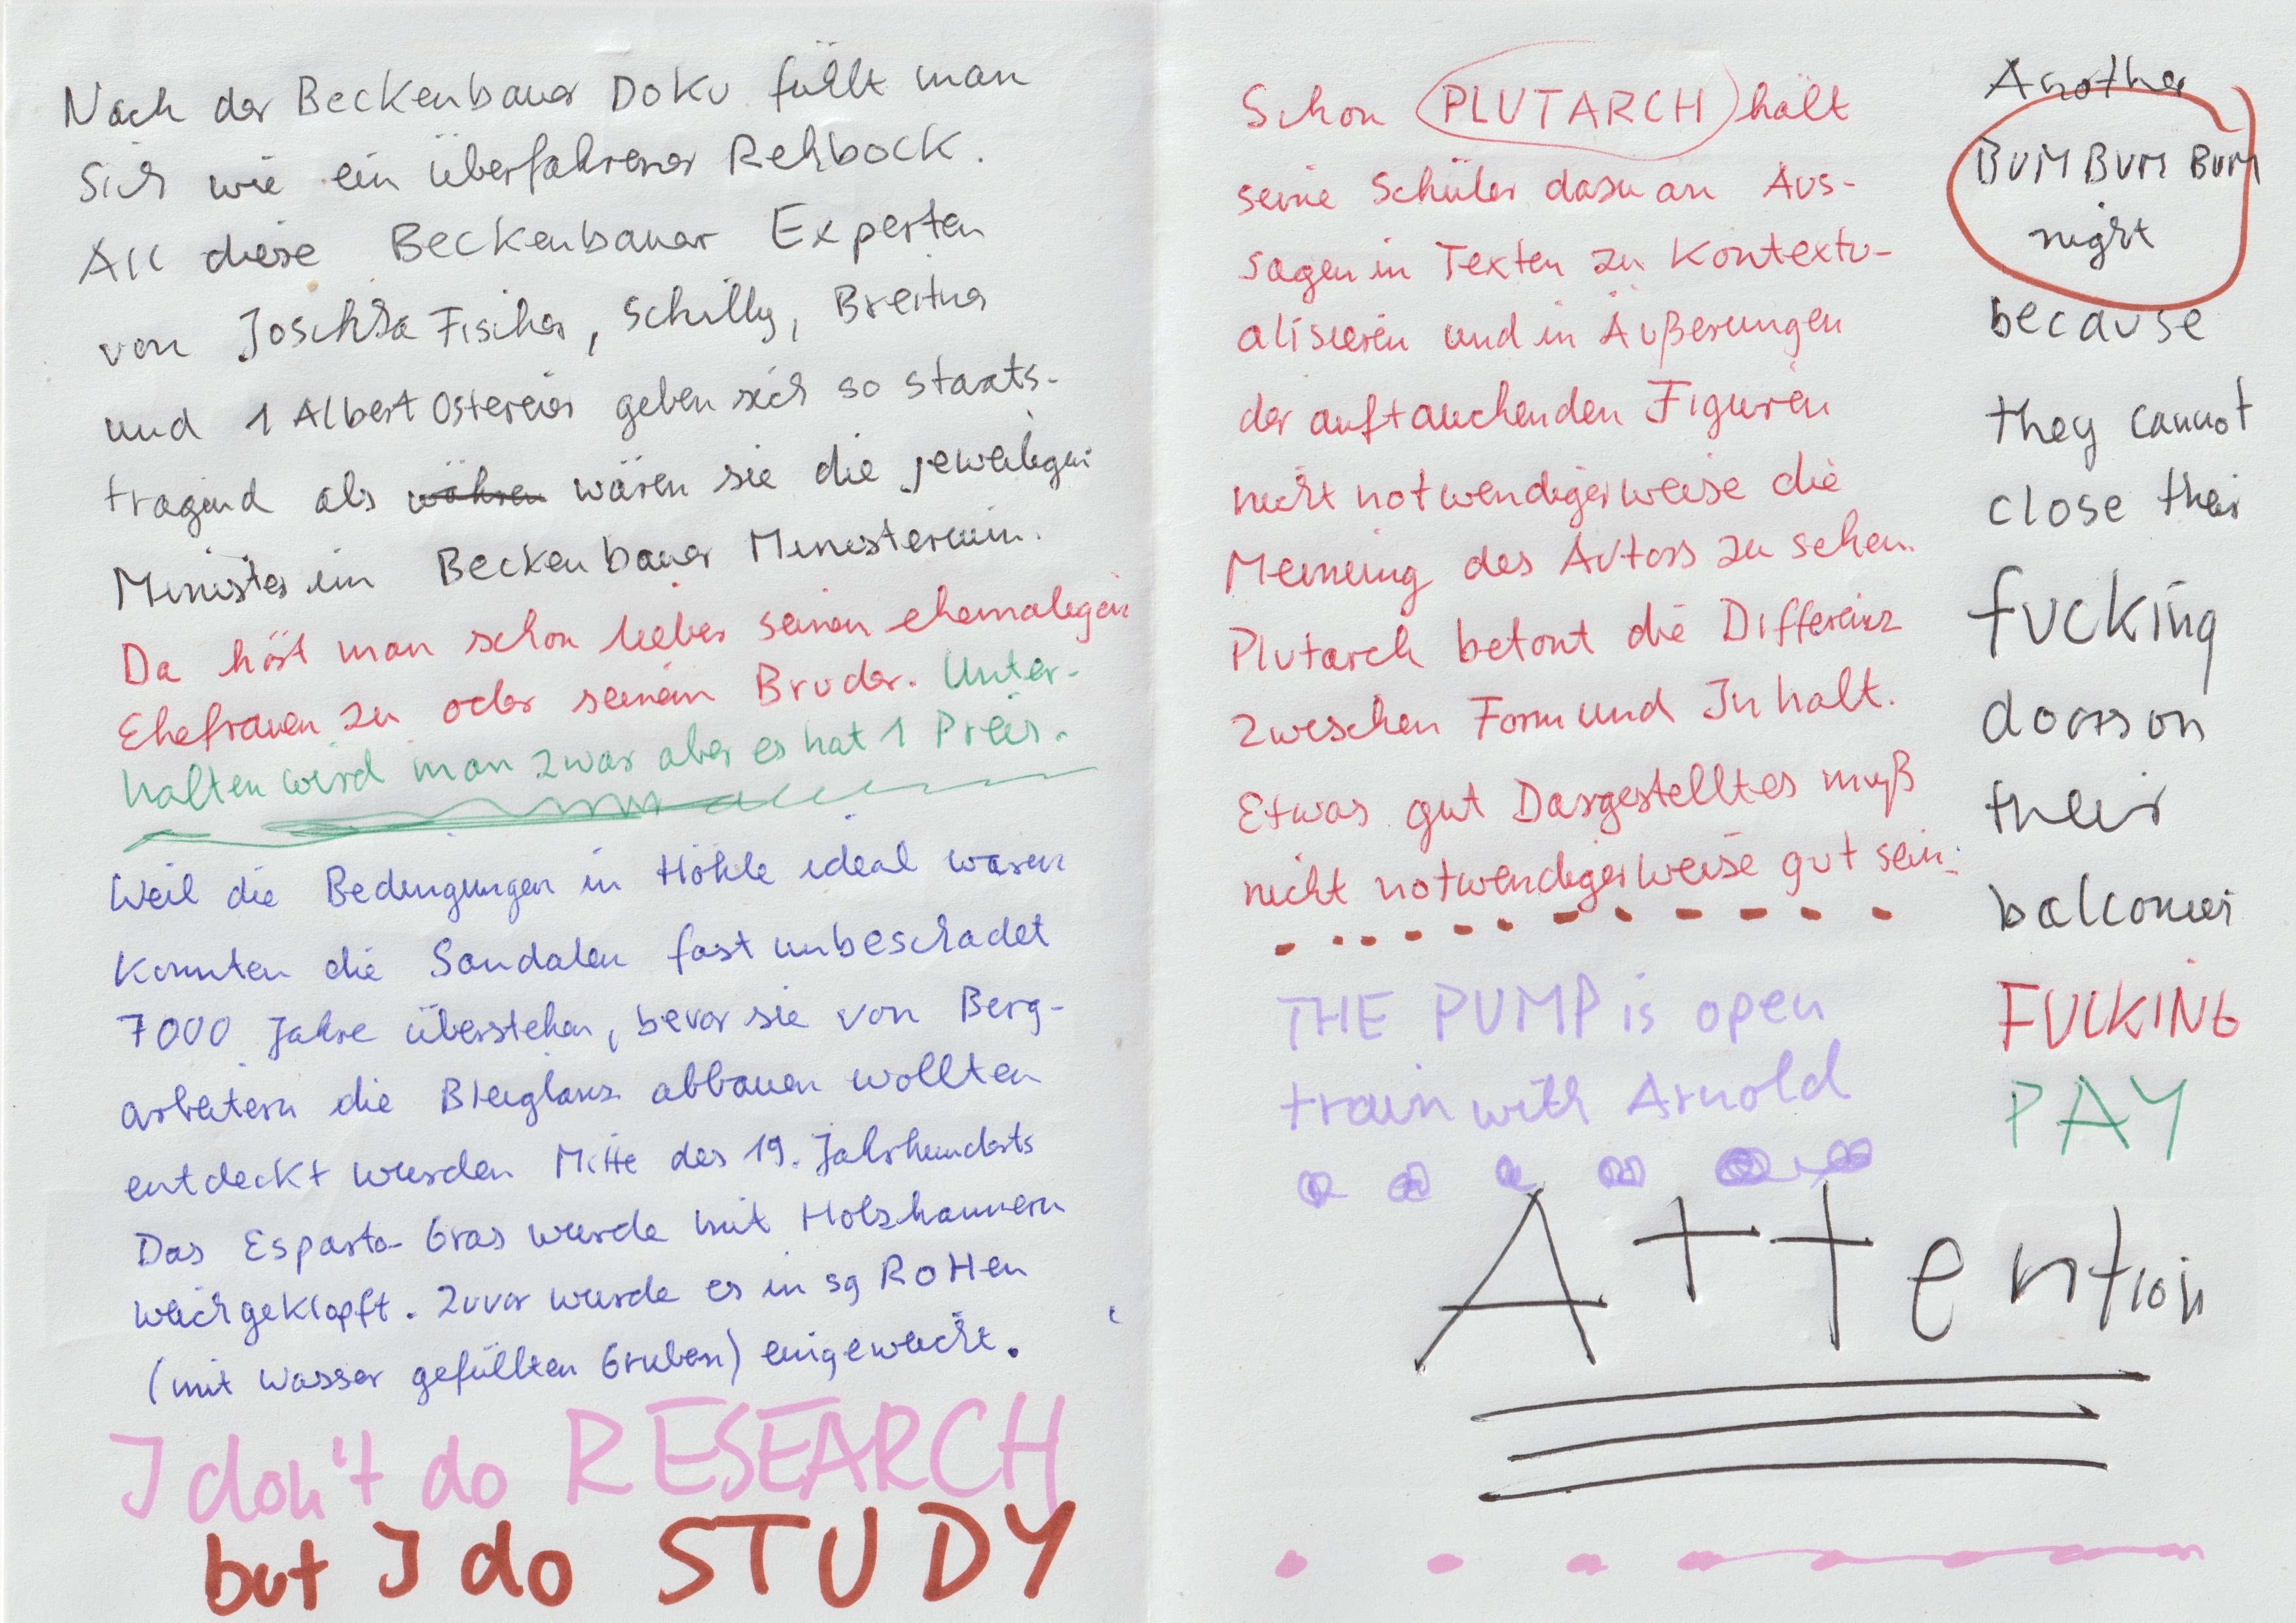 Nach der Beckenbauer Doku fühlt man
sich wie ein überfahrener Rehbock.
All diese Beckenbauer Experten
von Joschka Fischer, Schilly, Breitner
und 1 Albert Ostereier geben sich so staats-
tragend als währen wären sie die jeweiligen
Minister im Beckenbauer Ministerium.
Da hört man schon lieber seinen ehemaligen
Ehefrauen zu oder seinem Bruder. Unter-
halten wird man zwar aber es hat 1 Preis.
Weil die Bedingungen in Höhle ideal waren
konnten die Sandalen fast unbeschadet
7000 Jahre überstehen, bevor sie von Berg-
arbeitern die Bleiglanz abbauen wollten
entdeckt wurden Mitte des 19. Jahrhunderts
Das Esparto-Gras wurde mit Holzhammern
weichgeklopft. Zuvor wurde es in sg Rotten
(mit Wasser gefüllten Gruben) eingeweicht.
I don't do RESEARCH
but I do STUDY
Schon PLUTARCH hält
seine Schüler dazu an Aus-
sagen in Texten zu Kontextu-
alisieren und in Äußerungen
der auftauchenden Figuren
nicht notwendigerweise die
Meinung des Autors zu sehen.
Plutarch betont die Differenz
zwischen Form und Inhalt.
Etwas gut Dargestelltes muß
nicht notwendigerweise gut sein.
THE PUMP is open
train with Arnold
Another
BUM BUM BUM
night
because
they cannot
close their
fucking
doors on
their
balconies
FUCKING
PAY
Attention